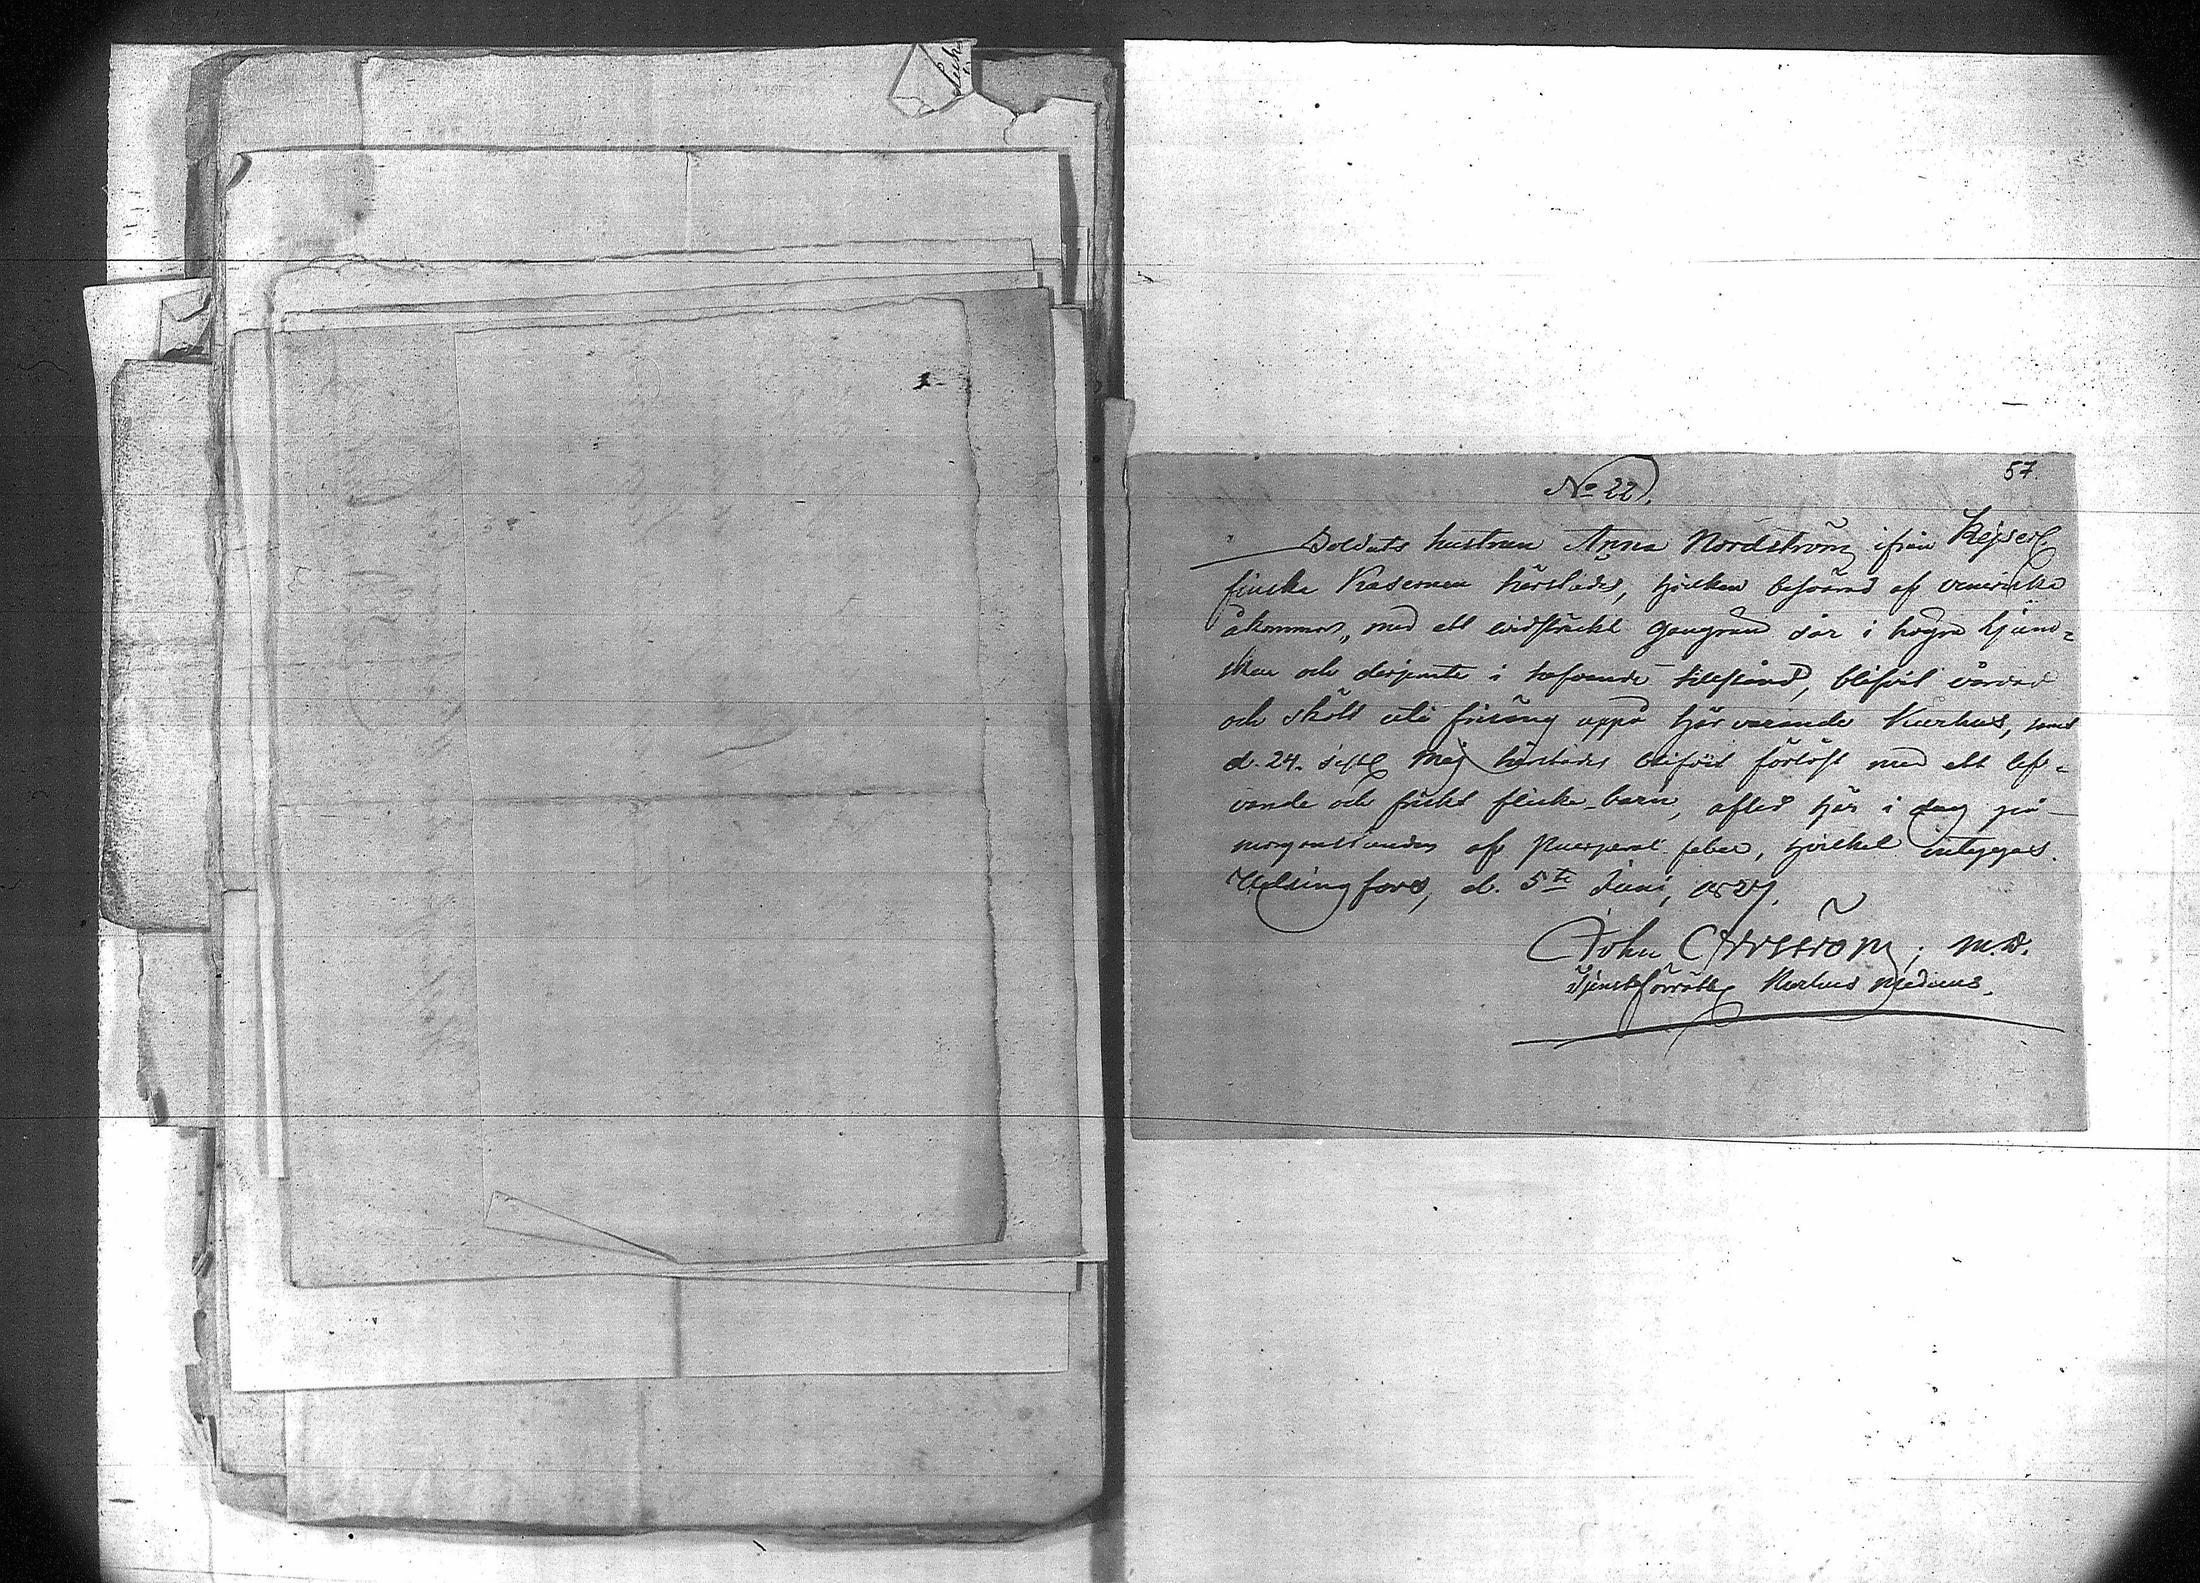 57.
No 22.
Soldats hustrun Anna Nordström ifrån Kejserl
finska Kasernen härstädes, hvilken besvärad af veneriska
åkommor, med ett vidsträckt gangren sår i högra ljum-
sken och desjemte i hafvande tillstånd, blifvit vårdad
och skött uti frisäng uppå härvarande Kurhus, samt
d. 24. sistl Maj härstädes blifvit förlöst med ett lef-
vande och friskt flicke-barn, afled här i dag på
morgonstunden af Puerperal feber, hvilket intygas.
Helsingfors, d. 5te Juni, 1827.
John M.D.
Tjensteförrätt Kurhus Medicus.